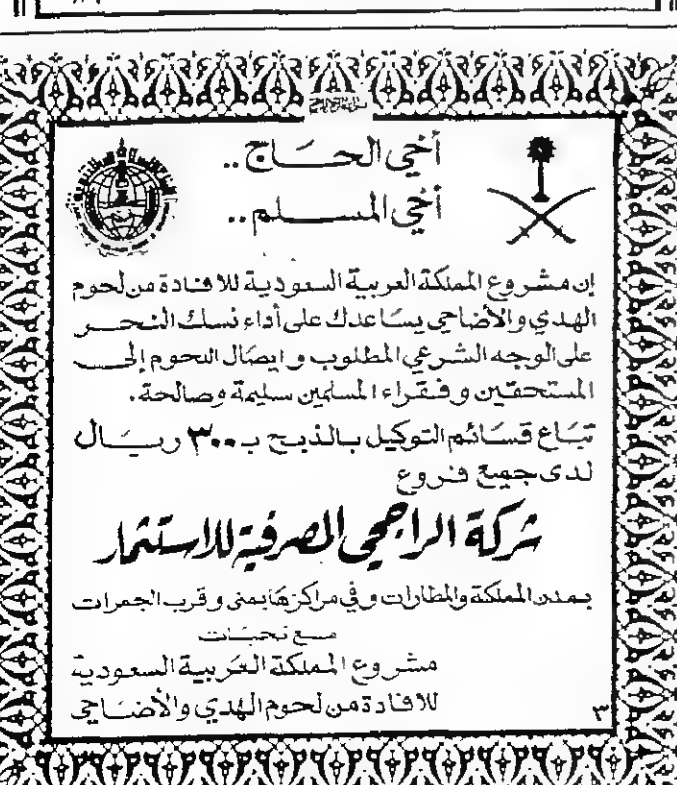 أخي الحـــاج ..
أخي المســـلم ..
إن مشروع المملكة العربية السعودية للافادة من لحوم
الهدي والأضاحي يساعدك على أداء نسك النحـــر
على الوجه الشرعي المطلوب وايصال اللحوم إلـــى
المستحقين وفقراء المسلمين سليمة وصالحة .
تباع قسائم التوكيل بالذبح بـ ٣٠٠ ريـــال
لدى جميع فروع
شركة الراجحي المصرفية للاستثمار
بمدن المملكة والمطارات وفي مراكزها بمنى وقرب الجمرات
مــع تحيــات
مشروع المملكة العربية السعودية
للافادة من لحوم الهدي والأضـــاحي
٣